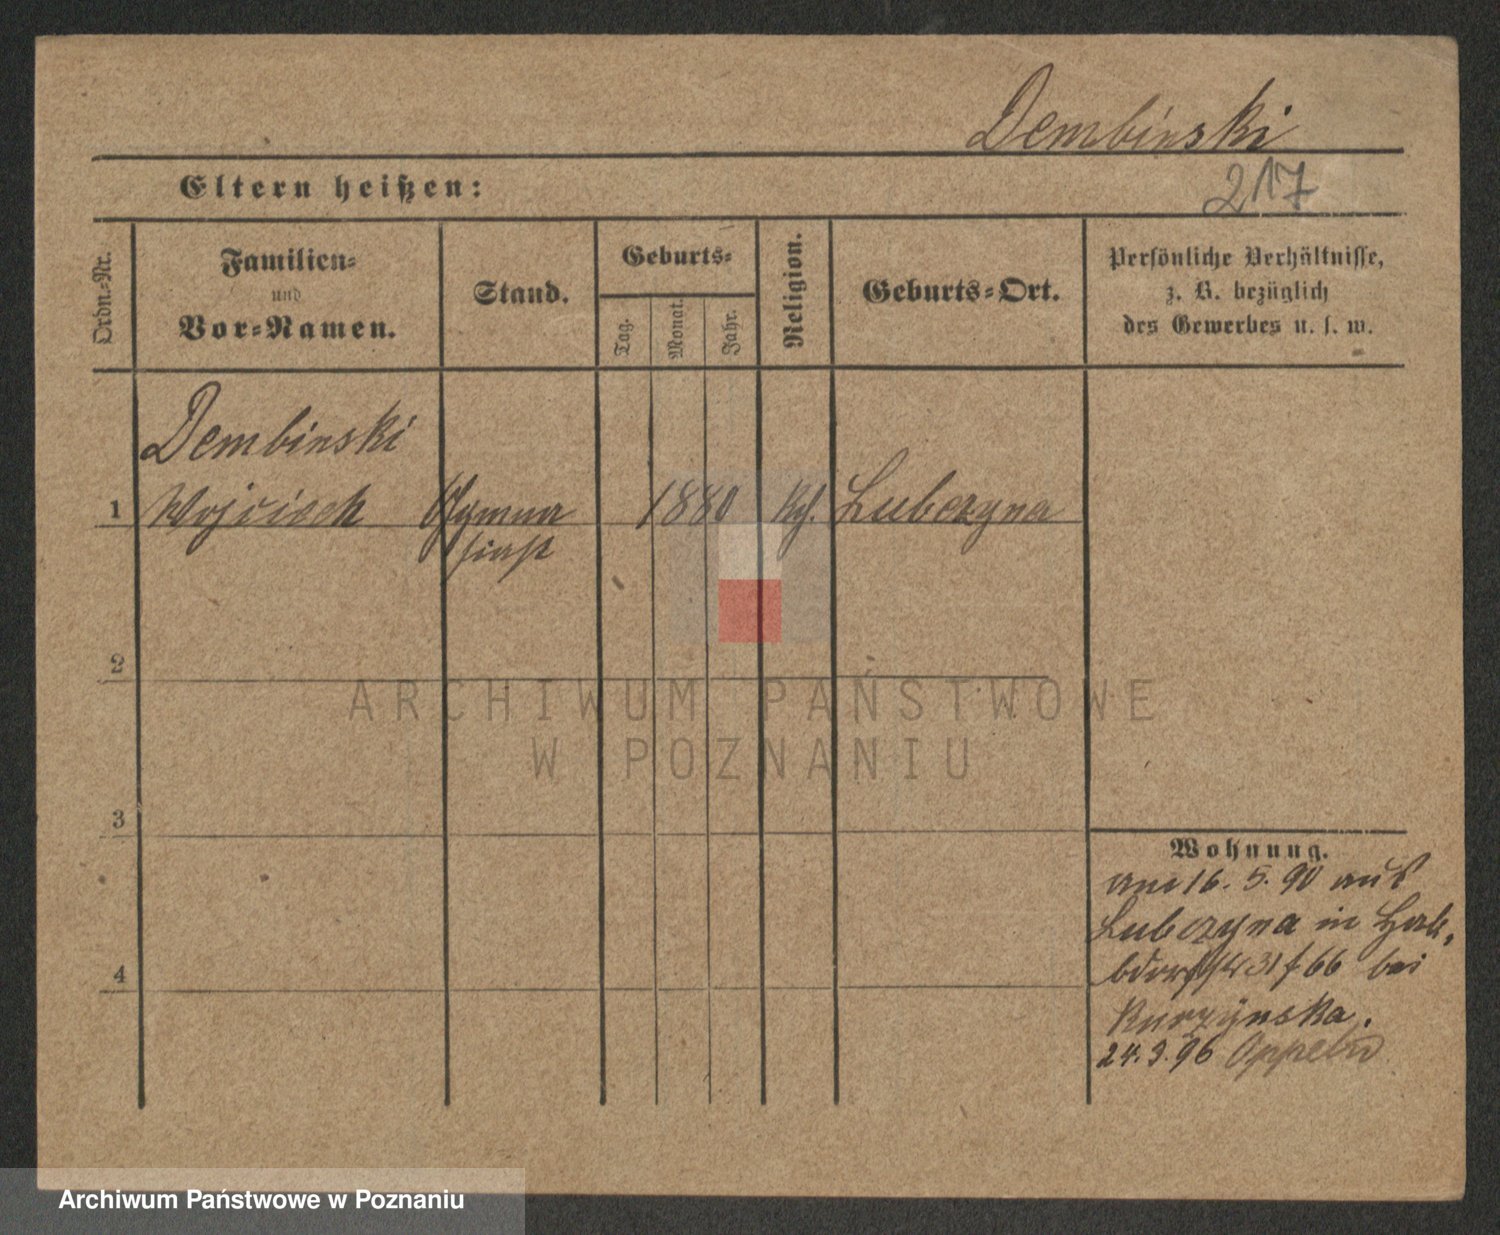 Dembinski
Eltern heißen:
217
Ordn.-Nr.
Familien-
und
Vor-Namen.
Stand.
Geburts-
Tag.
Monat.
Jahr.
Religion.
Geburts-Ort.
Persönliche Verhältnisse,
z. B. bezüglich
des Gewerbes u. s. w.
Dembinski
1 Wojciech Gymna 1880 Kth. Lubczyna
siast
2
ARCHIWUM PAŃSTWOWE
W POZNANIU
3
Wohnung.
am 16. 5. 90 aus
Lubczyna in
4
66 bei
Kurzynska.
24. 3. 96 Oppeln
Archiwum Państwowe w Poznaniu